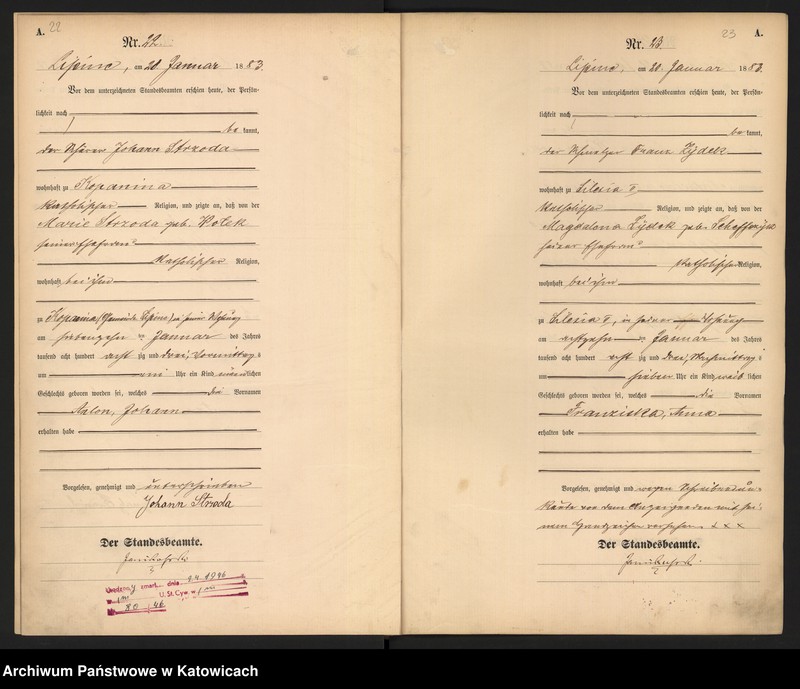 A. 22
Nr. 22.
Lipine, am 20. Januar 1883.
Vor dem unterzeichneten Standesbeamten erschien heute, der Persön-
lichkeit nach
be kannt,
der Johann Strzoda
wohnhaft zu Kopanina
katholischer Religion, und zeigte an, daß von der
Marie Strzoda geb. Kolek
seiner Ehefrau
katholischer Religion,
wohnhaft bei ihm
zu Kopanina (Gemeinde Lipine) in seiner Wohnung
am siebenzehn ten Januar des Jahres
tausend acht hundert acht zig und drei, Vormittags
um Uhr ein Kind männlichen
Geschlechts geboren worden sei, welches die Vornamen
Johann
erhalten habe
Vorgelesen, genehmigt und unterschrieben
Johann Strzoda
Der Standesbeamte.
9.4.1946
U.St.Cyw. w
80 46
23 A.
Nr. 23.
Lipine, am 20. Januar 1883.
Vor dem unterzeichneten Standesbeamten erschien heute, der Persön-
lichkeit nach
be kannt,
der Schmelzer Franz Zydek
wohnhaft zu Silesia
katholischer Religion, und zeigte an, daß von der
Magdalena Zydek geb.
seiner Ehefrau
katholischer Religion,
wohnhaft bei ihm
zu Silesia in seiner Wohnung
am achtzehn ten Januar des Jahres
tausend acht hundert acht zig und drei, Nachmittags
um sieben Uhr ein Kind weib lichen
Geschlechts geboren worden sei, welches die Vornamen
Franziska, Anna
erhalten habe
Vorgelesen, genehmigt und wegen Schreibensun-
kunde von dem Anzeigenden mit sei-
nem Handzeichen versehen. x x x
Der Standesbeamte.
Archiwum Państwowe w Katowicach